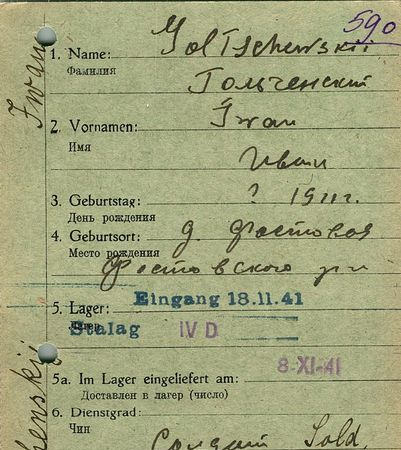 590
1. Name: Goltschewskii
Фамилия Гольченский
2. Vornamen: Iwan
Имя Иван
3. Geburtstag: ? 1911 г.
День рождения
4. Geburtsort: д. Фастовая
Место рождения
Фастовского р-н
5. Lager: Eingang 18.11.41
Лагерь Stalag IV D
8-XI-41
5a. Im Lager eingeliefert am:
Доставлен в лагер (число)
6. Dienstgrad:
Чин Солдат Sold.
Iwan